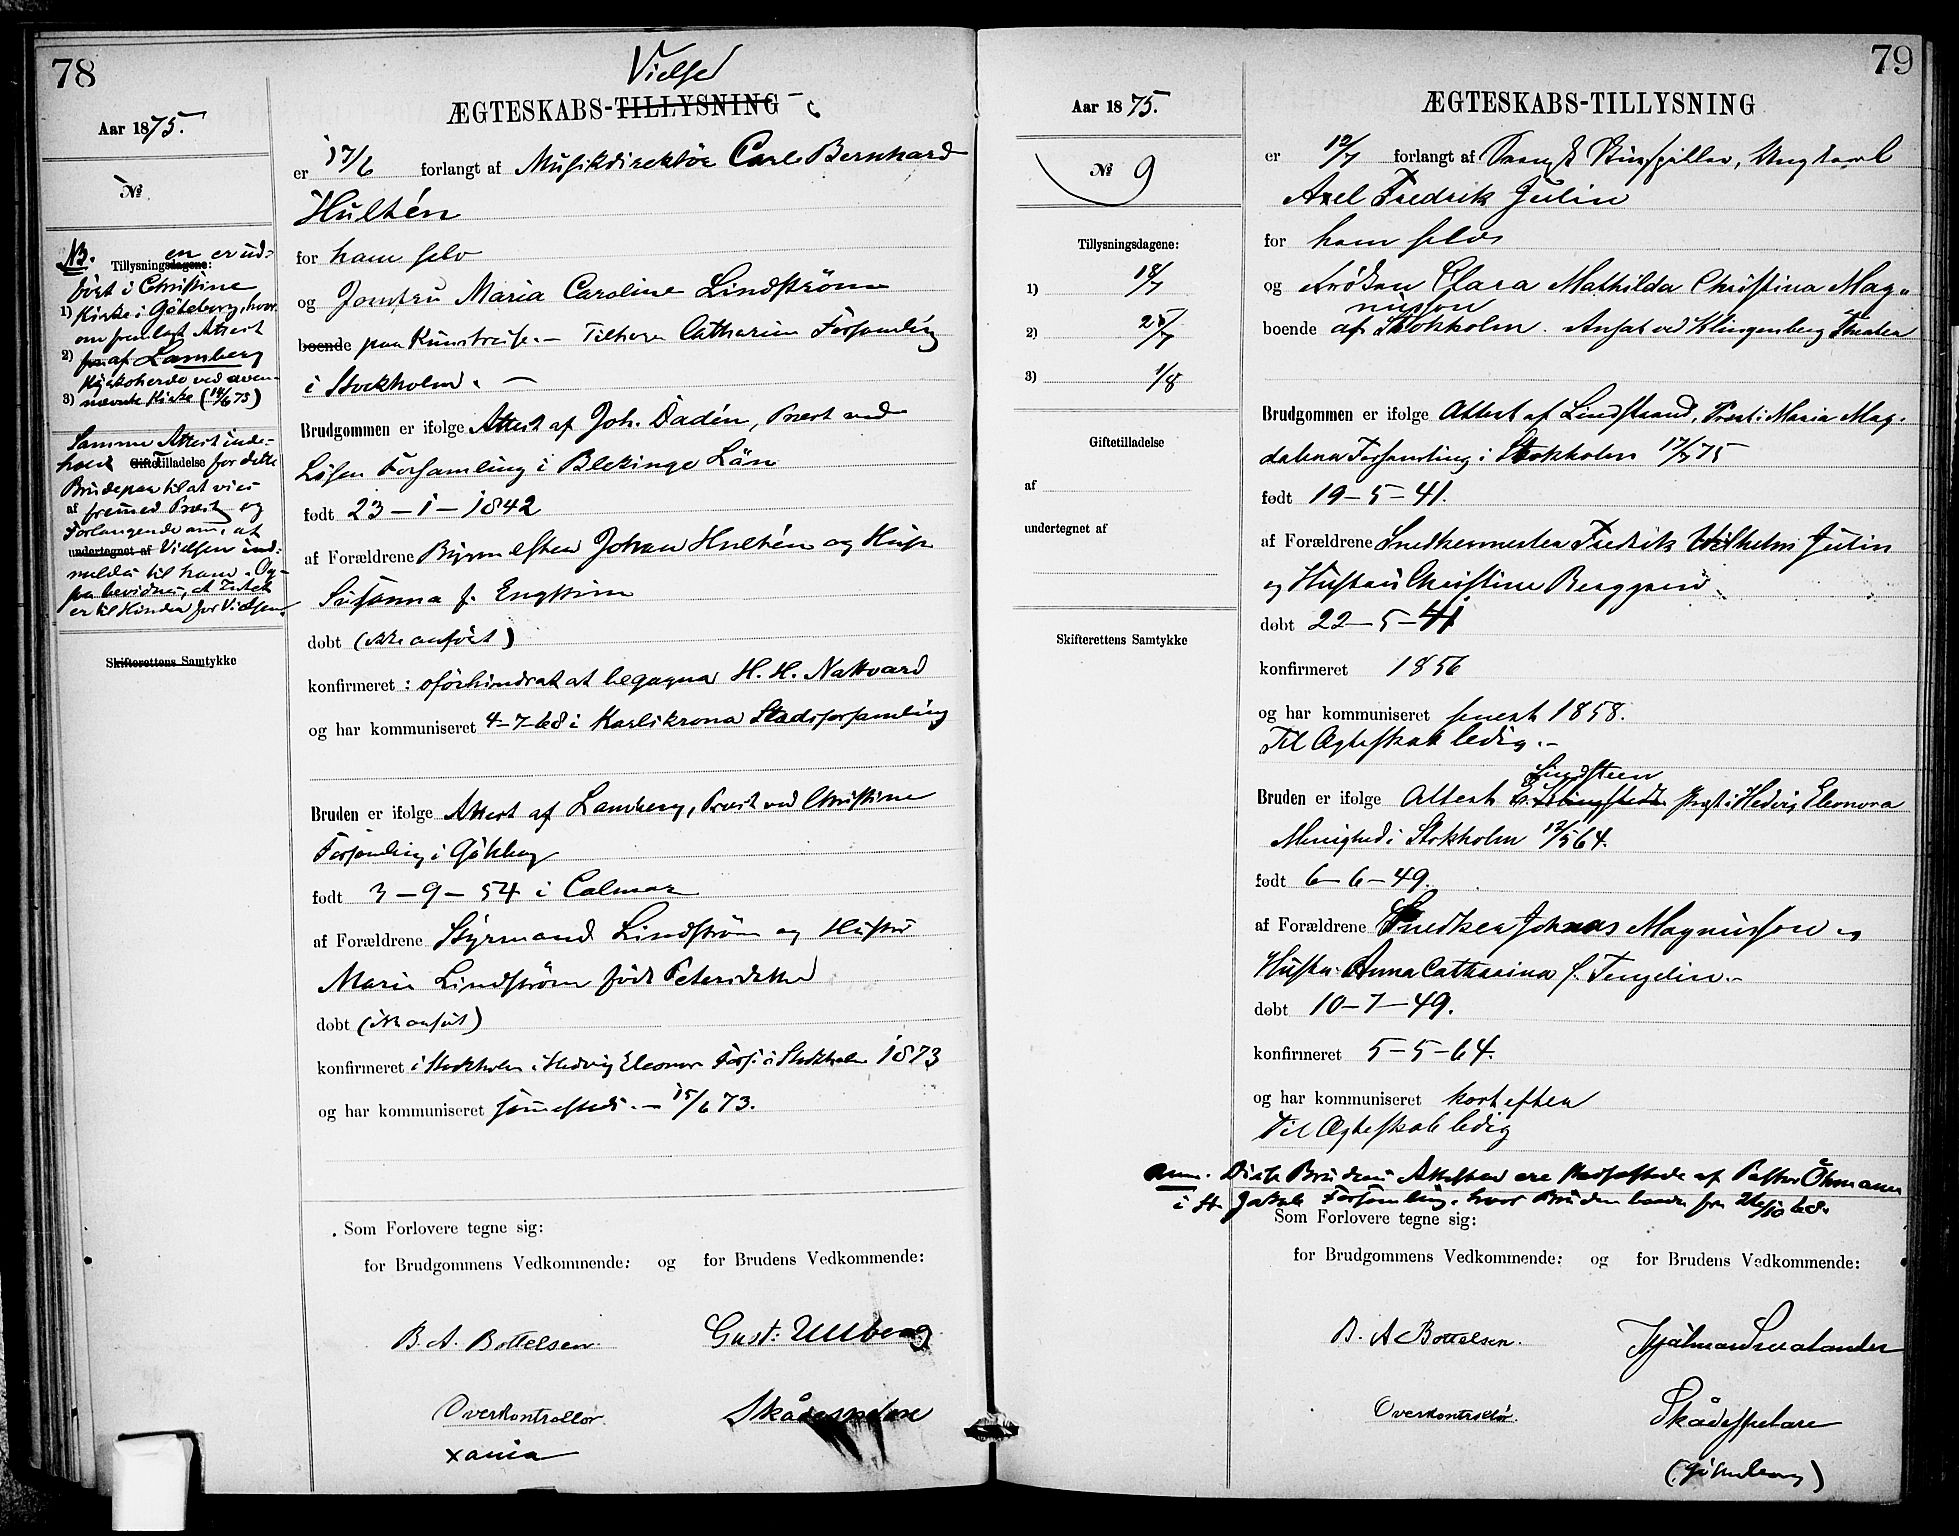 78
Vielse
ÆGTESKABS-TILLYSNING
Aar 1875.
No.
er 17/6 forlangt af Musikdirektör Carl Bernhard
Hultén
for ham selv
og Jomfru Maria Caroline Lindström
boende paa Kunstreise. – Tilhører Catharina Forsamling
i Stockholm. –
NB. Tillysningsdagene: en er ud-
ført i Christine
1) Kirke i Göteborg, hvor-
om fremlagt Attest
2) af Lamberg
Kyrkoherde ved oven-
3) nævnte Kirke (14/6 75)
Samme Attest inde-
holdt Giftetilladelse for dette
Brudepar til at vies
af fremmed Præst og
Forlangende om, at
undertegnet af Vielsen ind-
meldes til ham. Og-
saa bevidnes, at Intet
er til Hinder for Vielsen.
Skifterettens Samtykke
Brudgommen er ifølge Attest af Joh. Dadén, Præst ved
Lösen Forsamling i Blekinge Län
født 23 – 1 – 1842
af Forældrene Johan Hultén og Hustr
Susanna f. Engström
døbt (ikke anført)
konfirmeret : oförhindrat at begagna H. H. Nattvard
og har kommuniseret 4-7-68 i Karlskrona Stadsforsamling
Bruden er ifølge Attest af Lamberg, Præst ved Christine
Forsamling i Götebog
født 3 – 9 – 54 i Calmar
af Forældrene Styrmand Lindström og Hustru
Maria Lindström født
døbt (ikke anført)
konfirmeret i Stockholm i Hedvig Eleonor Fors. i Stockholm 1873
og har kommuniseret sammesteds. – 15/6 73.
Som Forlovere tegne sig:
for Brudgommens Vedkommende: og for Brudens Vedkommende:
B. A. Bottelsen Gust: Ullberg
Overkontrollör Skådespelare
xania
79
ÆGTESKABS-TILLYSNING
Aar 1875.
No 9
er 12/7 forlangt af Svensk Skuespiller, Ungkarl
Axel Fredrik Julin
for ham selv
og Frøken Clara Mathilda Christina Mag-
nusson
boende af Stokholm. Ansat ved Klingenberg Theater
Tillysningsdagene:
1) 18/7
2) 25/7
3) 1/8
Giftetilladelse
af
undertegnet af
Skifterettens Samtykke
Brudgommen er ifølge Attest af Lindstrand, Præst i Maria Mag-
dalena Forsamling i Stokholm 17/7 75
født 19 – 5 – 41.
af Forældrene Snedkermester Fredrik Wilhelm Julin
og Hustru Christine Berggren
døbt 22 – 5 – 41
konfirmeret 1856
og har kommuniseret senest 1858.
Til Ægteskab ledig. –
Lindsteen
Bruden er ifølge Attest Præst i Hedvig Eleonora
Menighed i Stokholm 12/5 64.
født 6 – 6 – 49.
af Forældrene Snedker Johnas Magnusson og
Hustru Anna Catharina f. Tengelin. –
døbt 10 – 7 – 49.
konfirmeret 5 – 5 – 64.
og har kommuniseret kort efter
Til Ægteskab ledig
Anm. Disse Brudens Attester ere af Pastor Öhmann
i St. Jakobs Forsamling, hvor Bruden
Som Forlovere tegne sig:
for Brudgommens Vedkommende: og for Brudens Vedkommende:
B. A Bottelsen. Hjalmar Smalander
Overkontrolör. Skådespelare
(Göteborg)